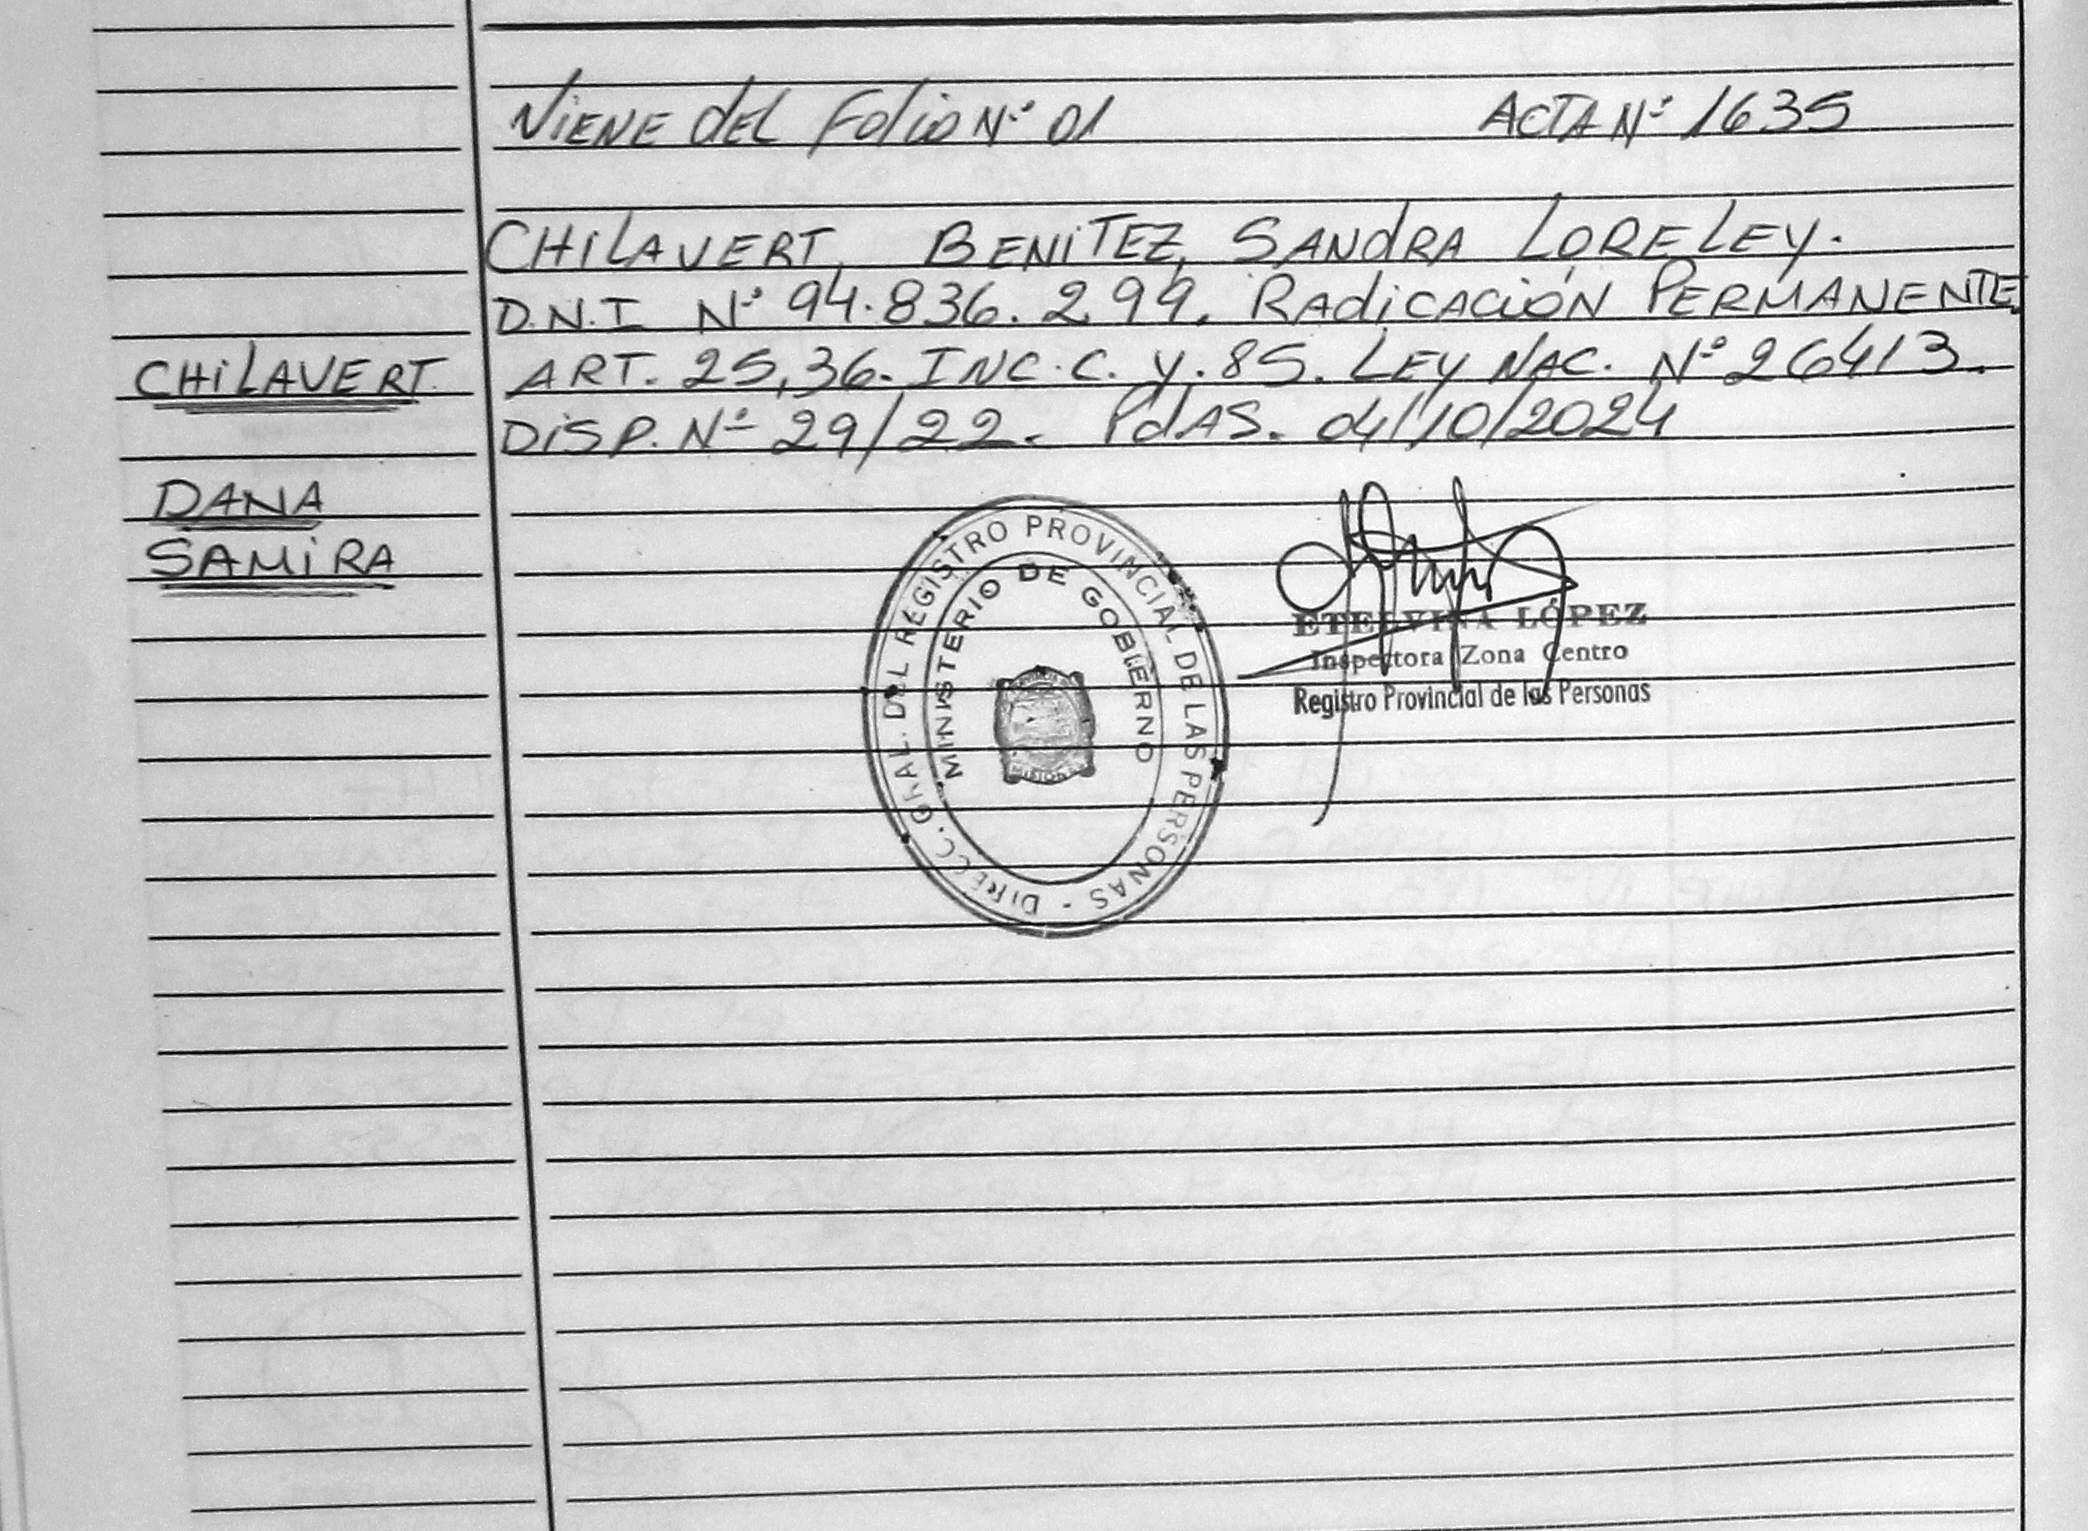 VIENE dEL Folio Nº 01 ACTA Nº 1635
CHILAVERT, BENITEZ, SANdRA LORELEY.
D.N.I Nº 94.836.299. RAdICACIÓN PERMANENTE
CHILAVERT ART. 25,36. INC.C. Y. 85. LEY NAC. Nº 26413.
DISP. Nº 29/22. PdAS. 04/10/2024
DANA
SAMIRA
DIRECC. GRAL. DEL REGISTRO PROVINCIAL DE LAS PERSONAS -
MINISTERIO DE GOBIERNO
ETELVINA LÓPEZ
Inspectora Zona Centro
Registro Provincial de las Personas